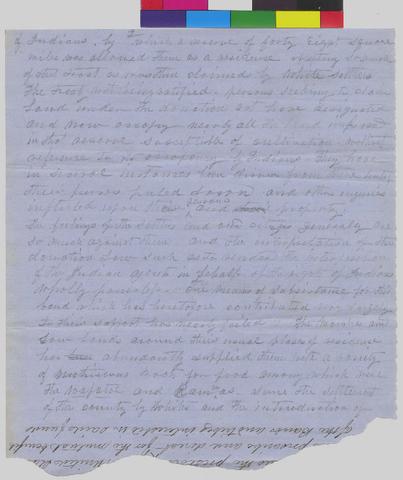 of Indians, by which a reserve of forty Eight square
miles was allowed them as a residence
of that tract is now claimed by White Settlers
The Treaty not being ratified, persons seeking to claim
Land under the donation act have designated
and now occupy nearly all the land
in that reserve susceptible of cultivation without
reference to its occupancy by Indians. They have
in several instances been driven from their
their fences pulled down and other injuries
inflicted upon their persons and property
The feelings of the settlers and citizens generally are
so much against them, and the interpretation of the
donation Law such as to render the interposition
of the Indian agent in behalf of the rights of Indians
wholly powerless. One means of subsistence for this
band which has heretofore contributed very largely
to their support has nearly failed. The prairies and
Low Lands around their usual place of residence
has abundantly supplied them with a variety
of nutricious roots for food among which were
the Wapatoe and Kamas. Since the settlement
of the country by Whites and the introduction of
of the Bands and tribes interested in said lands
provisions and direct for the mutual benefit
United